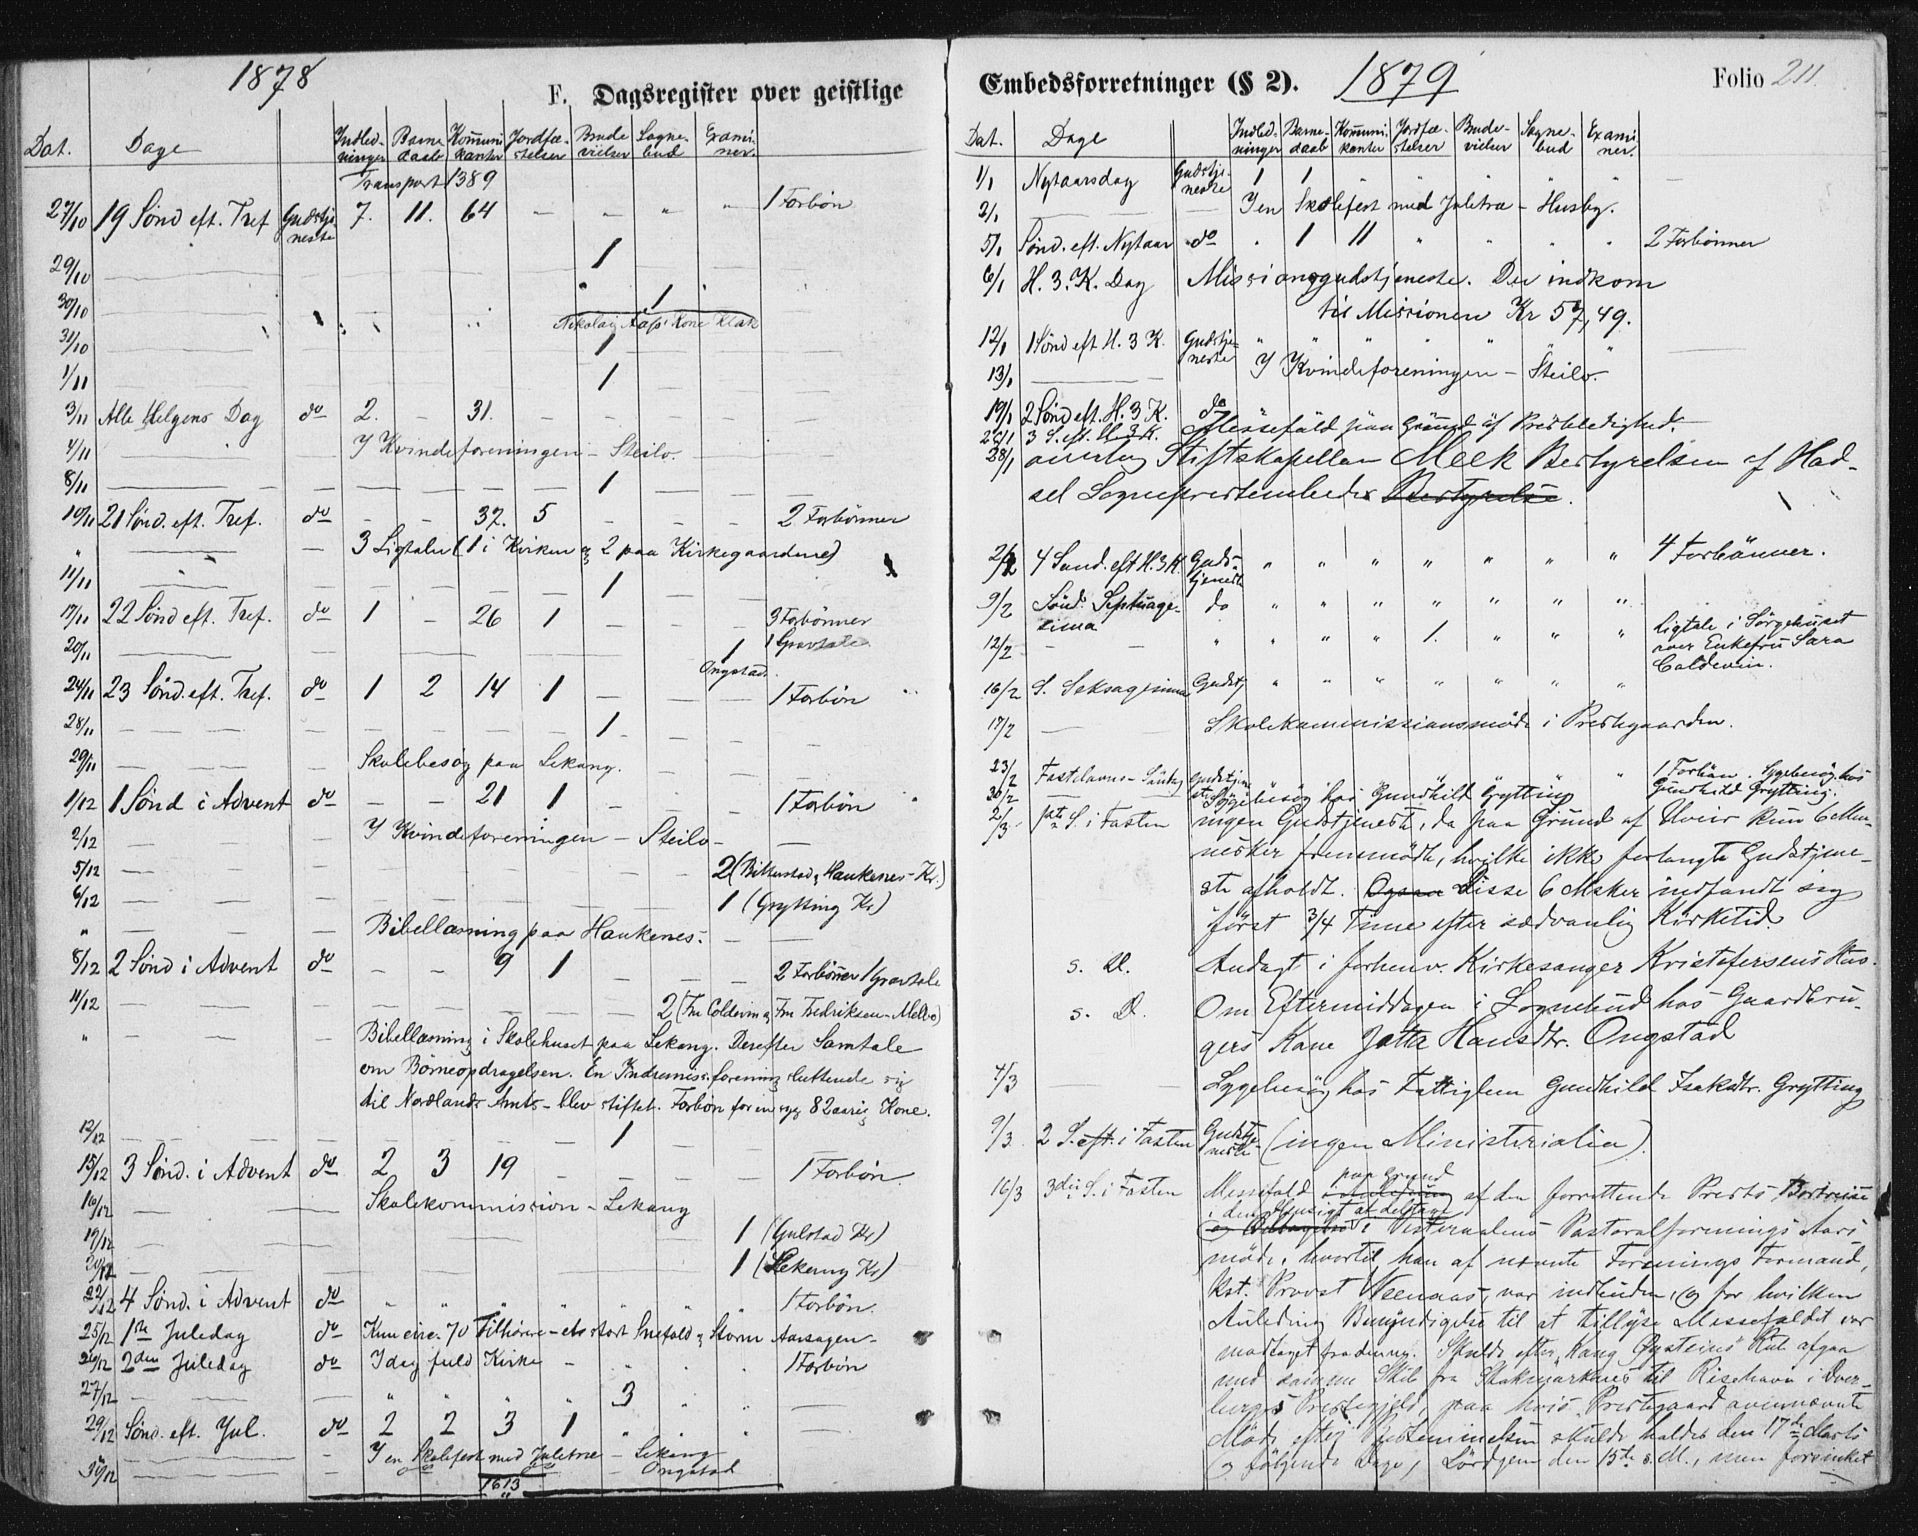 1878
F. Dagsregister over geistlige
Dat. Dage Indledninger Barnedaab Kommunikanter Jordfæstelser Brudevielser Sognebud Examiner.
Transport 1389
27/10 19 Sønd eft. Tref Gudstjeneste 7. 11. 64 — " " " 1 Forbøn
29/10 1
30/10 1
Nikolaj Aas's Kone Klak
31/10 1
1/11 1
3/11 Alle Helgens Dag do 2. — 31. —
4/11 I Kvindeforeningen – Steilo.
8/11 1
10/11 21 Sønd. eft. Tref. do — — 37. 5 — — — 2 Forbønner
" 3 Ligtaler (1 i Kirken og 2 paa Kirkegaardene)
11/11 1
17/11 22 Sønd eft. Tref. do 1 — 26 1 — — — 3 Forbønner
20/11 1 1 Gravtale
Ongstad.
24/11 23 Sønd. eft. Tref. do 1 2 14 1 — 1 Forbøn
28/11 1
29/11 Skolebesøg paa Lekang.
1/12 1 Sønd i Advent do — — 21 1 — 1 Forbøn
2/12 I Kvindeforeningen – Steilo –
5/12 2 (Bitterstad og Haukenes – Kr.)
6/12 1 (Grytting Kr)
" Bibellæsning paa Haukenes.
8/12 2 Sønd i Advent do — — 9 1 — 2 Forbønner 1 Gravtale
11/12 2 (Fru Coldevin og Fru Fredriksen – Melbo)
" Bibellæsning i Skolehuset paa Lekang. Derefter Samtale
om Børneopdragelsen. En Indremiss. forening sluttende sig
til Nordlands Amts – blev stiftet. Forbøn for en syg 82aarig Kone.
12/12 1
15/12 3 Sønd. i Advent do 2 3 19 1 Forbøn.
16/12 Skolekommission – Lekang
19/12 1 (Gulstad Kr)
20/12 1 (Lekang Kr)
22/12 4 Sønd. i Advent do " " " " " " " 1 Forbøn.
25/12 1ste Juledag do Kun circ. 70 Tilhørere – et stort Snefald og Storm Aarsagen –
26/12 2den Juledag do I dag fuld Kirke – 1 Forbøn
27/12 3
29/12 Sønd. eft. Jul. do 2 2 3 1
30/12 I en Skolefest med Juletræ – Lekang
Ongstad
1613
Embedsforretninger (§ 2). 1879 Folio 211.
Dat. Dage Indledninger Barnedaab Kommunikanter Jordfæstelser Brudevielser Sognebud Examiner.
1/1 Nytaarsdag Gudstjeneste 1 1 " " " " —
2/1 I en Skolefest med Juletræ – Husby.
5/1 Sønd. eft. Nytaar do " 1 11 " " " " 2 Forbønner
6/1 H. 3. K. Dag Missionsgudstjeneste. Der indkom
til Missionen Kr 57,49.
12/1 1 Sønd eft H. 3 K. Gudstjeneste " " " " " " "
13/1 I Kvindeforeningen – Steilo.
19/1 2 Sønd. eft. H. 3 K. do
26/1 3 S. eft. H. 3 K. Messefald paa Grund af Presteledighed.
28/1 overtog Stiftskapellan Meek Bestyrelsen af Had-
sel Sogneprestembede Bestyrelse.
2/2 4 Sund. eft H. 3 K. Gudstjeneste " " " " " " " 4 Forbönner.
9/2 Sönd. Septuagesima do " " " " " " "
12/2 — — " " " 1. " " " Ligtale i Sörgehuset
over Enkefru Sara
Coldevin.
16/2 S. Seksagesima Gudstj " " " " " " "
17/2 Skolekommissionsmöde i Prestegaarden.
23/2 Fastelavns – Söndag Gudstjeneste " 1 Forbön. Sygebesög hos
Gundhild Grytting.
Sygebesög hos Gundhild Grytting
2/3 1ste S. i Fasten ingen Gudstjeneste, da paa Grund af Uveir kun 6 Men-
nesker fremmödte, hvilke ikke forlangte Gudstjene-
ste afholdt. Ogsaa Disse 6 Msker indfandt sig
först 3/4 Time efter sædvanlig Kirketid.
s. D. Andagt i forhenv. Kirkesanger Kristofersens Hus.
s. D. Om Eftermiddagen i Sognebud hos Gaardbru-
gers Kone Jetta Hansdtr. Ongstad
4/3 Sygebesög hos Fattiglem Gundhild Isaksdtr. Grytting
9/3 2 S. eft. i Fasten Gudstjeneste (ingen Ministerialia).
16/3 3die S. i Fasten Messefald paa Grund af den forrettende Prests Bortreise
i den Hensigt at deltage
i Vesteraalens Pastoralforenings Aars-
möde, hvortil han af nævnte Forenings Formand,
kst. Provst Weenaas, var indbuden, og for hvilken
Anledning Bemyndigelse til at tillyse Messefaldet var
modtaget. Skulde efter Kong Øysteins Rute afgaa
med samme Skib fra Stokmarknes til Risehavn i Dver-
bergs Prestegjeld, paa hvis Prestegaard ovennævnte
Möde efter Bestemmelsen skulde holdes den 17de Marts
og følgende Dage, Lördagen den 15de s. M., men forsinket